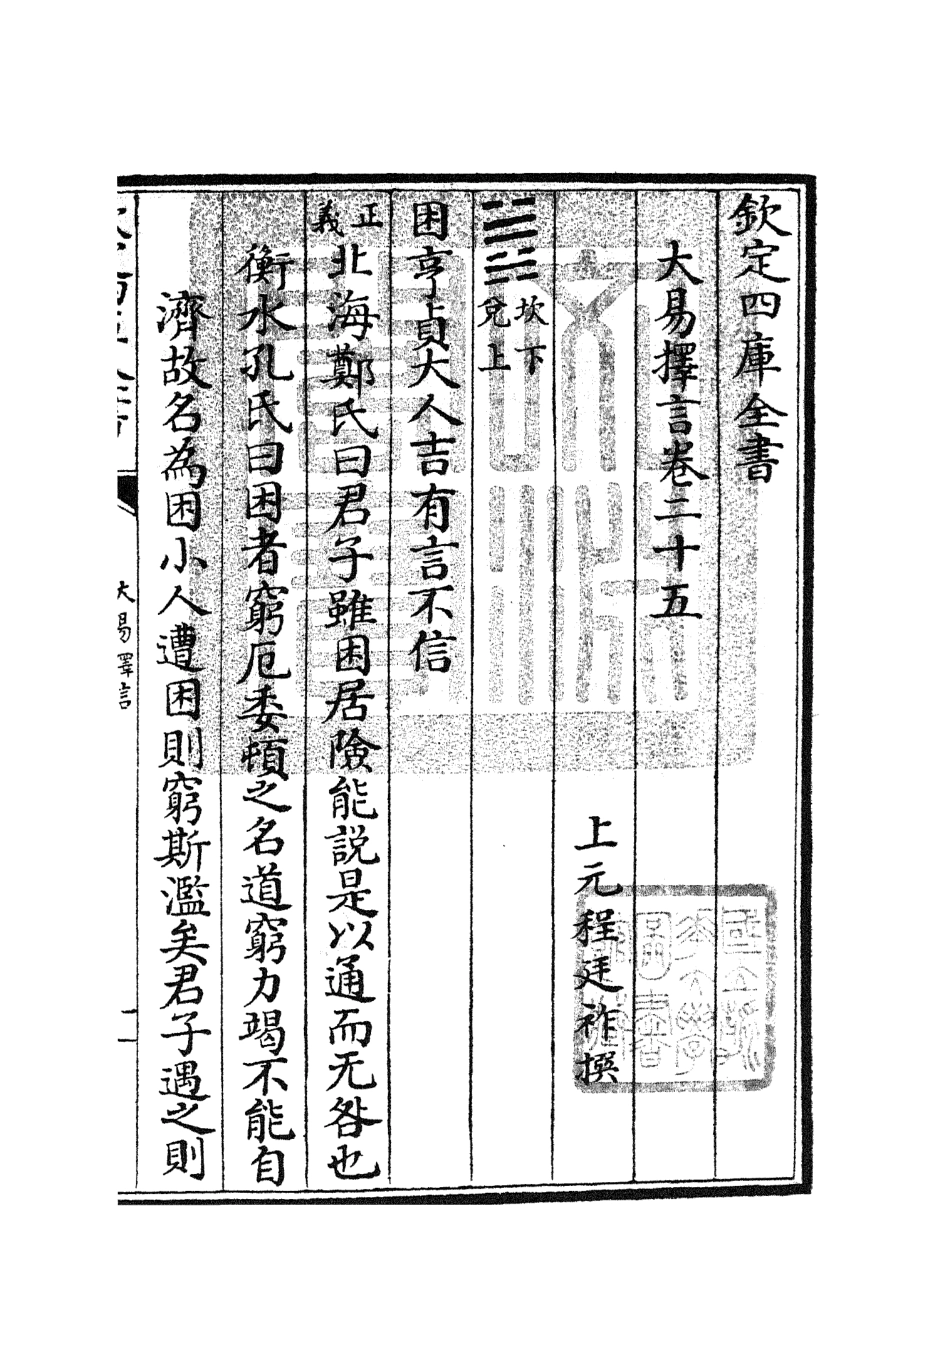 欽定四庫全書
大易擇言卷二十五
上元程廷祚撰
坎下
兌上
困亨貞大人吉有言不信
正義
北海鄭氏曰君子雖困居險能説是以通而无咎也
衡水孔氏曰困者窮厄委頓之名道窮力竭不能自
濟故名為困小人遭困則窮斯濫矣君子遇之則
大易擇言
一